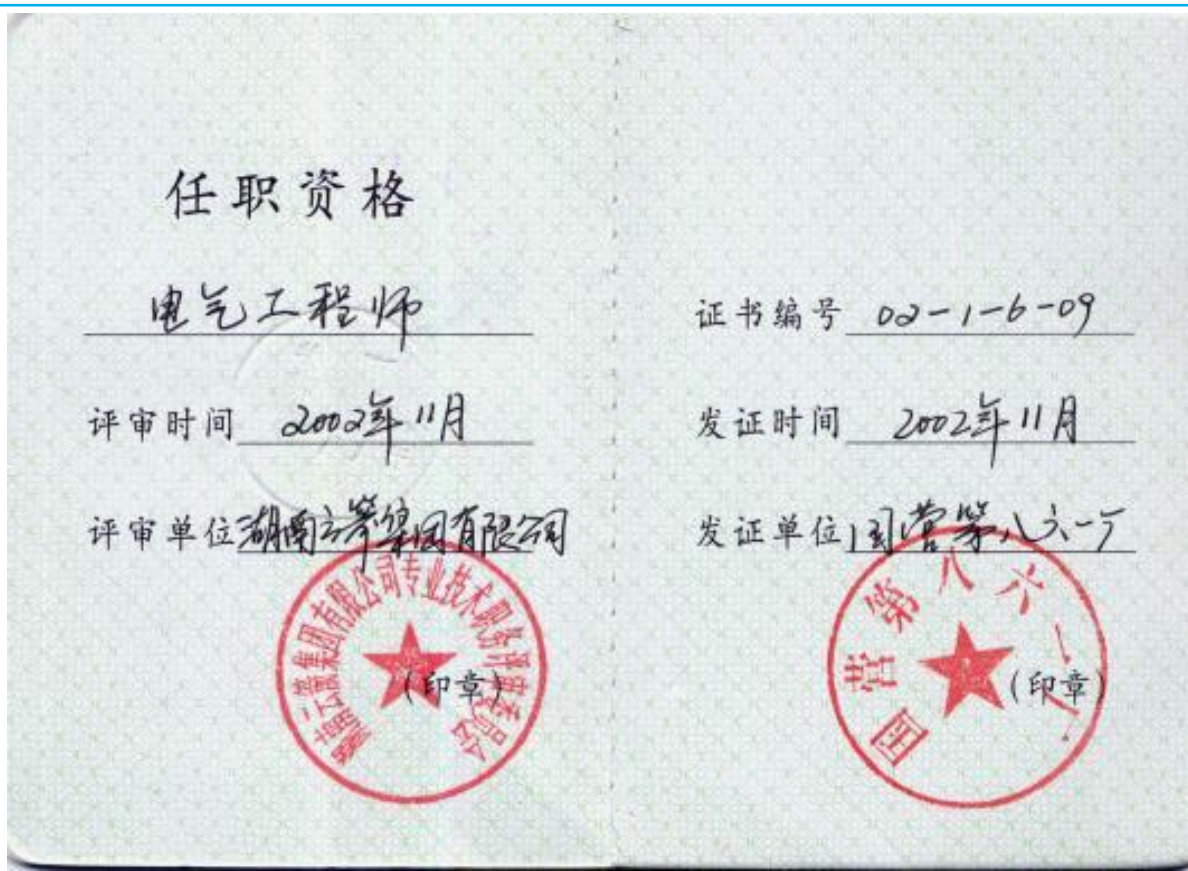 任职资格
电气工程师
评审时间 2002年11月
评审单位 湖南云箭集团有限公司
湖南云箭集团有限公司专业技术职务评审委员会
(印章)
证书编号 02-1-6-09
发证时间 2002年11月
发证单位 国营第八六一厂
国营第八六一厂
(印章)